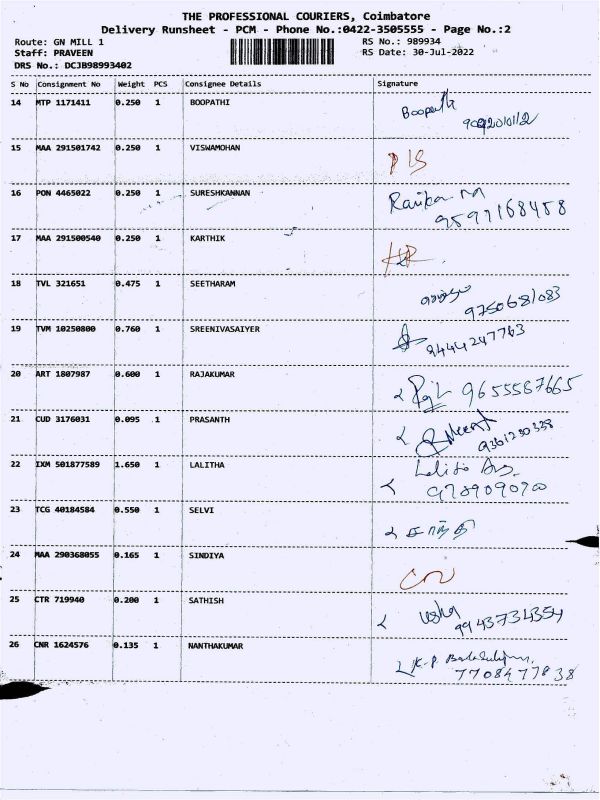 THE PROFESSIONAL COURIERS, Coimbatore
Delivery Runsheet - PCM - Phone No.:0422-3505555 - Page No.:2
Route: GN MILL 1 RS No.: 989934
Staff: PRAVEEN RS Date: 30-Jul-2022
DRS No.: DCJB98993402
S No Consignment No Weight PCS Consignee Details Signature
14 MTP 1171411 0.250 1 BOOPATHI Boopath
15 MAA 291501742 0.250 1 VISWAMOHAN
16 PON 4465022 0.250 1 SURESHKANNAN
9597168458
17 MAA 291500540 0.250 1 KARTHIK
18 TVL 321651 0.475 1 SEETHARAM
9750681083
19 TVM 10250800 0.760 1 SREENIVASAIYER
9444247763
20 ART 1807987 0.600 1 RAJAKUMAR 9655587665
21 CUD 3176031 0.095 1 PRASANTH
9361230338
22 IXM 501877589 1.650 1 LALITHA
23 TCG 40184584 0.550 1 SELVI சாந்தி
24 MAA 290368055 0.165 1 SINDIYA
25 CTR 719940 0.200 1 SATHISH Usha
9943734354
26 CNR 1624576 0.135 1 NANTHAKUMAR K.P
7708477838